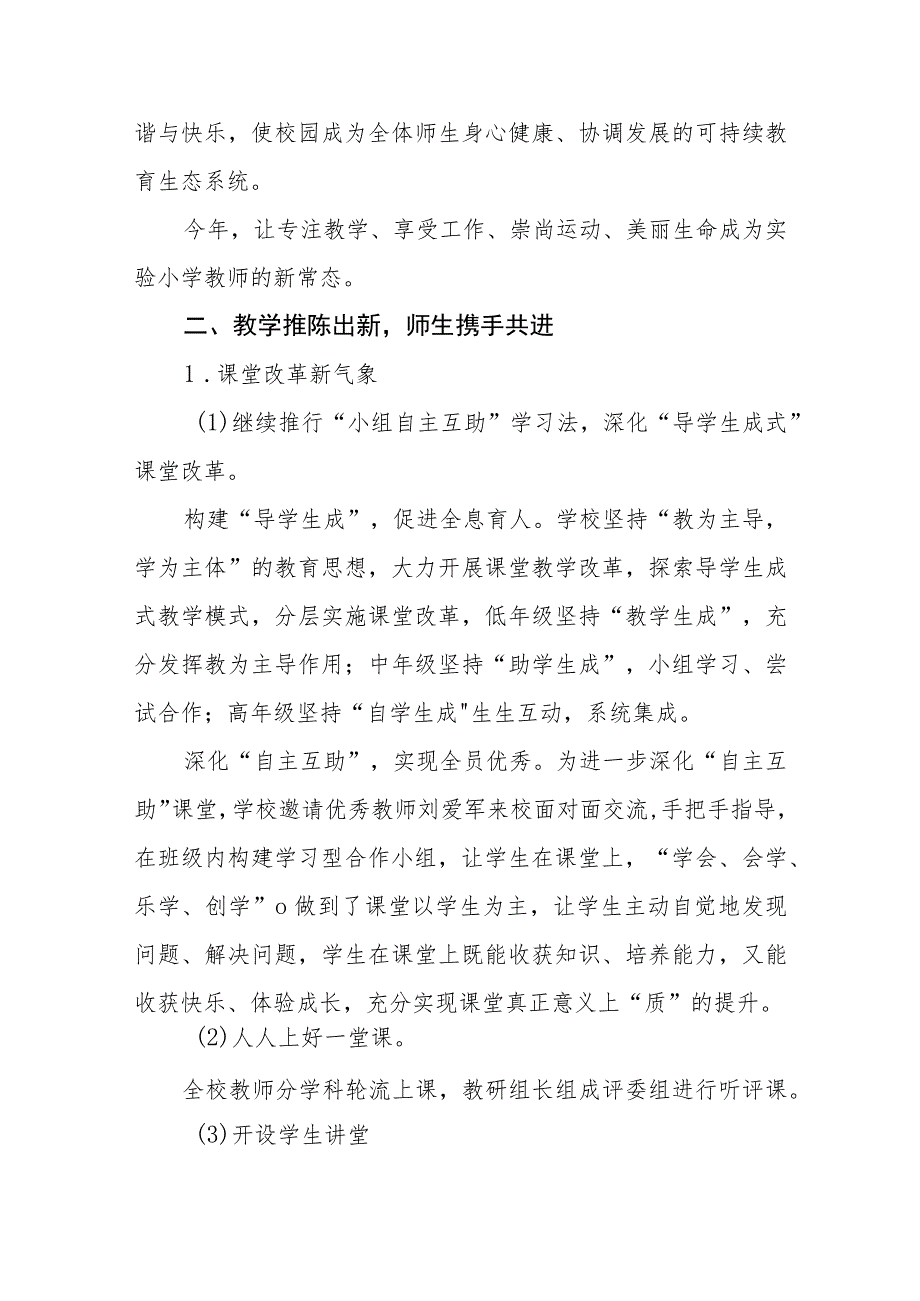 谐与快乐，使校园成为全体师生身心健康、协调发展的可持续教
育生态系统。
今年，让专注教学、享受工作、崇尚运动、美丽生命成为实
验小学教师的新常态。
二、教学推陈出新，师生携手共进
1.课堂改革新气象
(1)继续推行“小组自主互助”学习法，深化“导学生成式”
课堂改革。
构建“导学生成”，促进全息育人。学校坚持“教为主导，
学为主体”的教育思想，大力开展课堂教学改革，探索导学生成
式教学模式，分层实施课堂改革，低年级坚持“教学生成”，充
分发挥教为主导作用；中年级坚持“助学生成”，小组学习、尝
试合作；高年级坚持“自学生成"生生互动，系统集成。
深化“自主互助”，实现全员优秀。为进一步深化“自主互
助”课堂，学校邀请优秀教师刘爱军来校面对面交流,手把手指导，
在班级内构建学习型合作小组，让学生在课堂上，“学会、会学、
乐学、创学”o做到了课堂以学生为主，让学生主动自觉地发现
问题、解决问题，学生在课堂上既能收获知识、培养能力，又能
收获快乐、体验成长，充分实现课堂真正意义上“质”的提升。
(2)人人上好一堂课。
全校教师分学科轮流上课，教研组长组成评委组进行听评课。
(3)开设学生讲堂